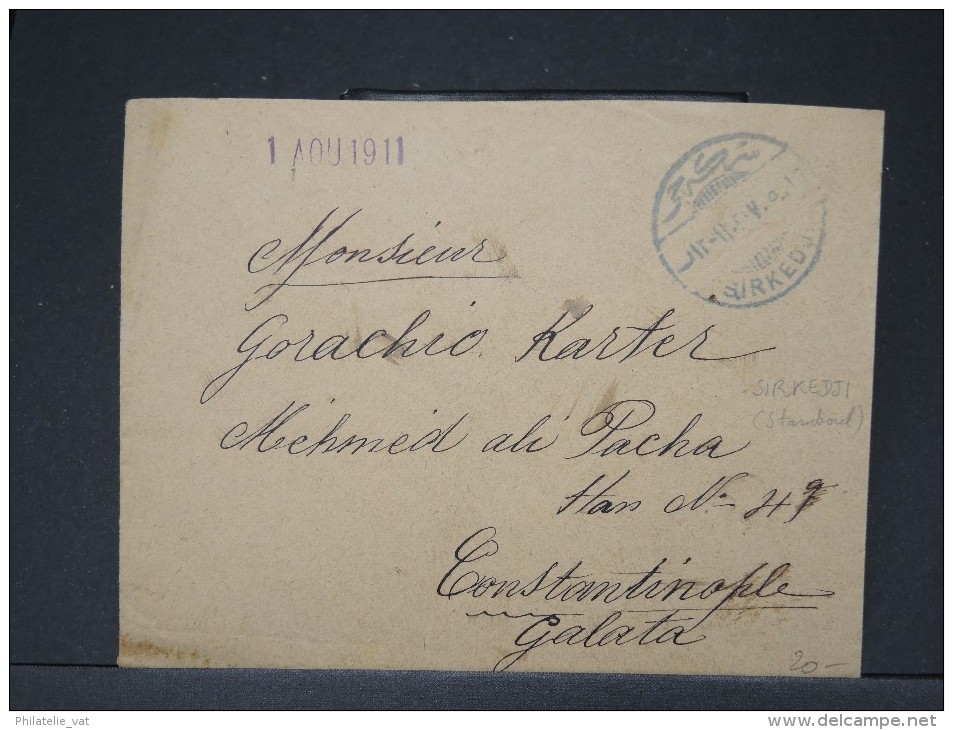 1 AOU 1911
SIRKEDJI
Monsieur
Gorachio Karter
SIRKEDJI
(Stamboul)
Mehmed ali Pacha
Han No 49
Constantinople
Galata
20-
Philatelie_vat
www.delcampe.net